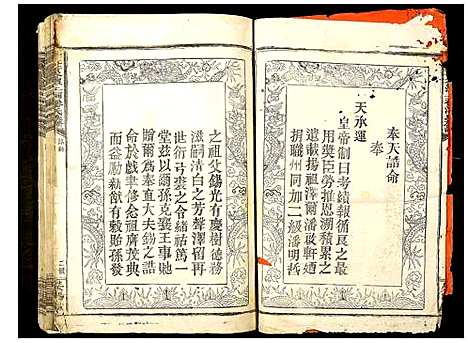 奉天誥命
奉
天承運
皇帝制曰考績報循良之最
用獎臣勞推恩溯積累之
遺載揚祖澤爾潘啟軒迺
捐職州同加二級潘明哲
之祖父錫光有慶樹德務
滋嗣清白之芳聲澤留再
世衍弓裘之令緒祜篤一
堂茲以爾孫克襄王事貤
贈爾為奉直大夫錫之誥
命於戲聿修念祖膺茂典
而益勵新猷有榖貽孫發